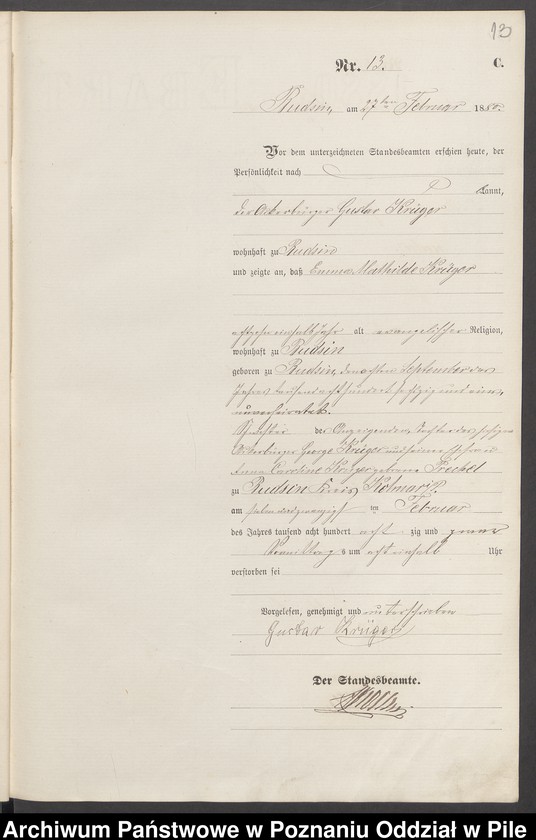 13
Nr. 13. C.
Budsin, am 27ten Februar 188
Vor dem unterzeichneten Standesbeamten erschien heute, der
Persönlichkeit nach
kannt,
der Ackerbürger Gustav Krüger
wohnhaft zu Budsin
und zeigte an, daß Emma Mathilde Krüger
alt evangelischer Religion,
wohnhaft zu Budsin
geboren zu Budsin, den achten September des
Jahres tausend acht hundert sechszig und eins,
unverheirathet.
Schwester des Anzeigenden, Tochter des
Ackerbürger George Krüger und seiner Ehefrau
Anna Caroline Krüger geborene
zu Budsin Kreis Kolmar i/P.
am zwanzigsten Februar
des Jahres tausend acht hundert acht zig und
Vormittags um acht einhalb Uhr
verstorben sei
Vorgelesen, genehmigt und unterschrieben
Gustav Krüger
Der Standesbeamte.
Archiwum Państwowe w Poznaniu Oddział w Pile